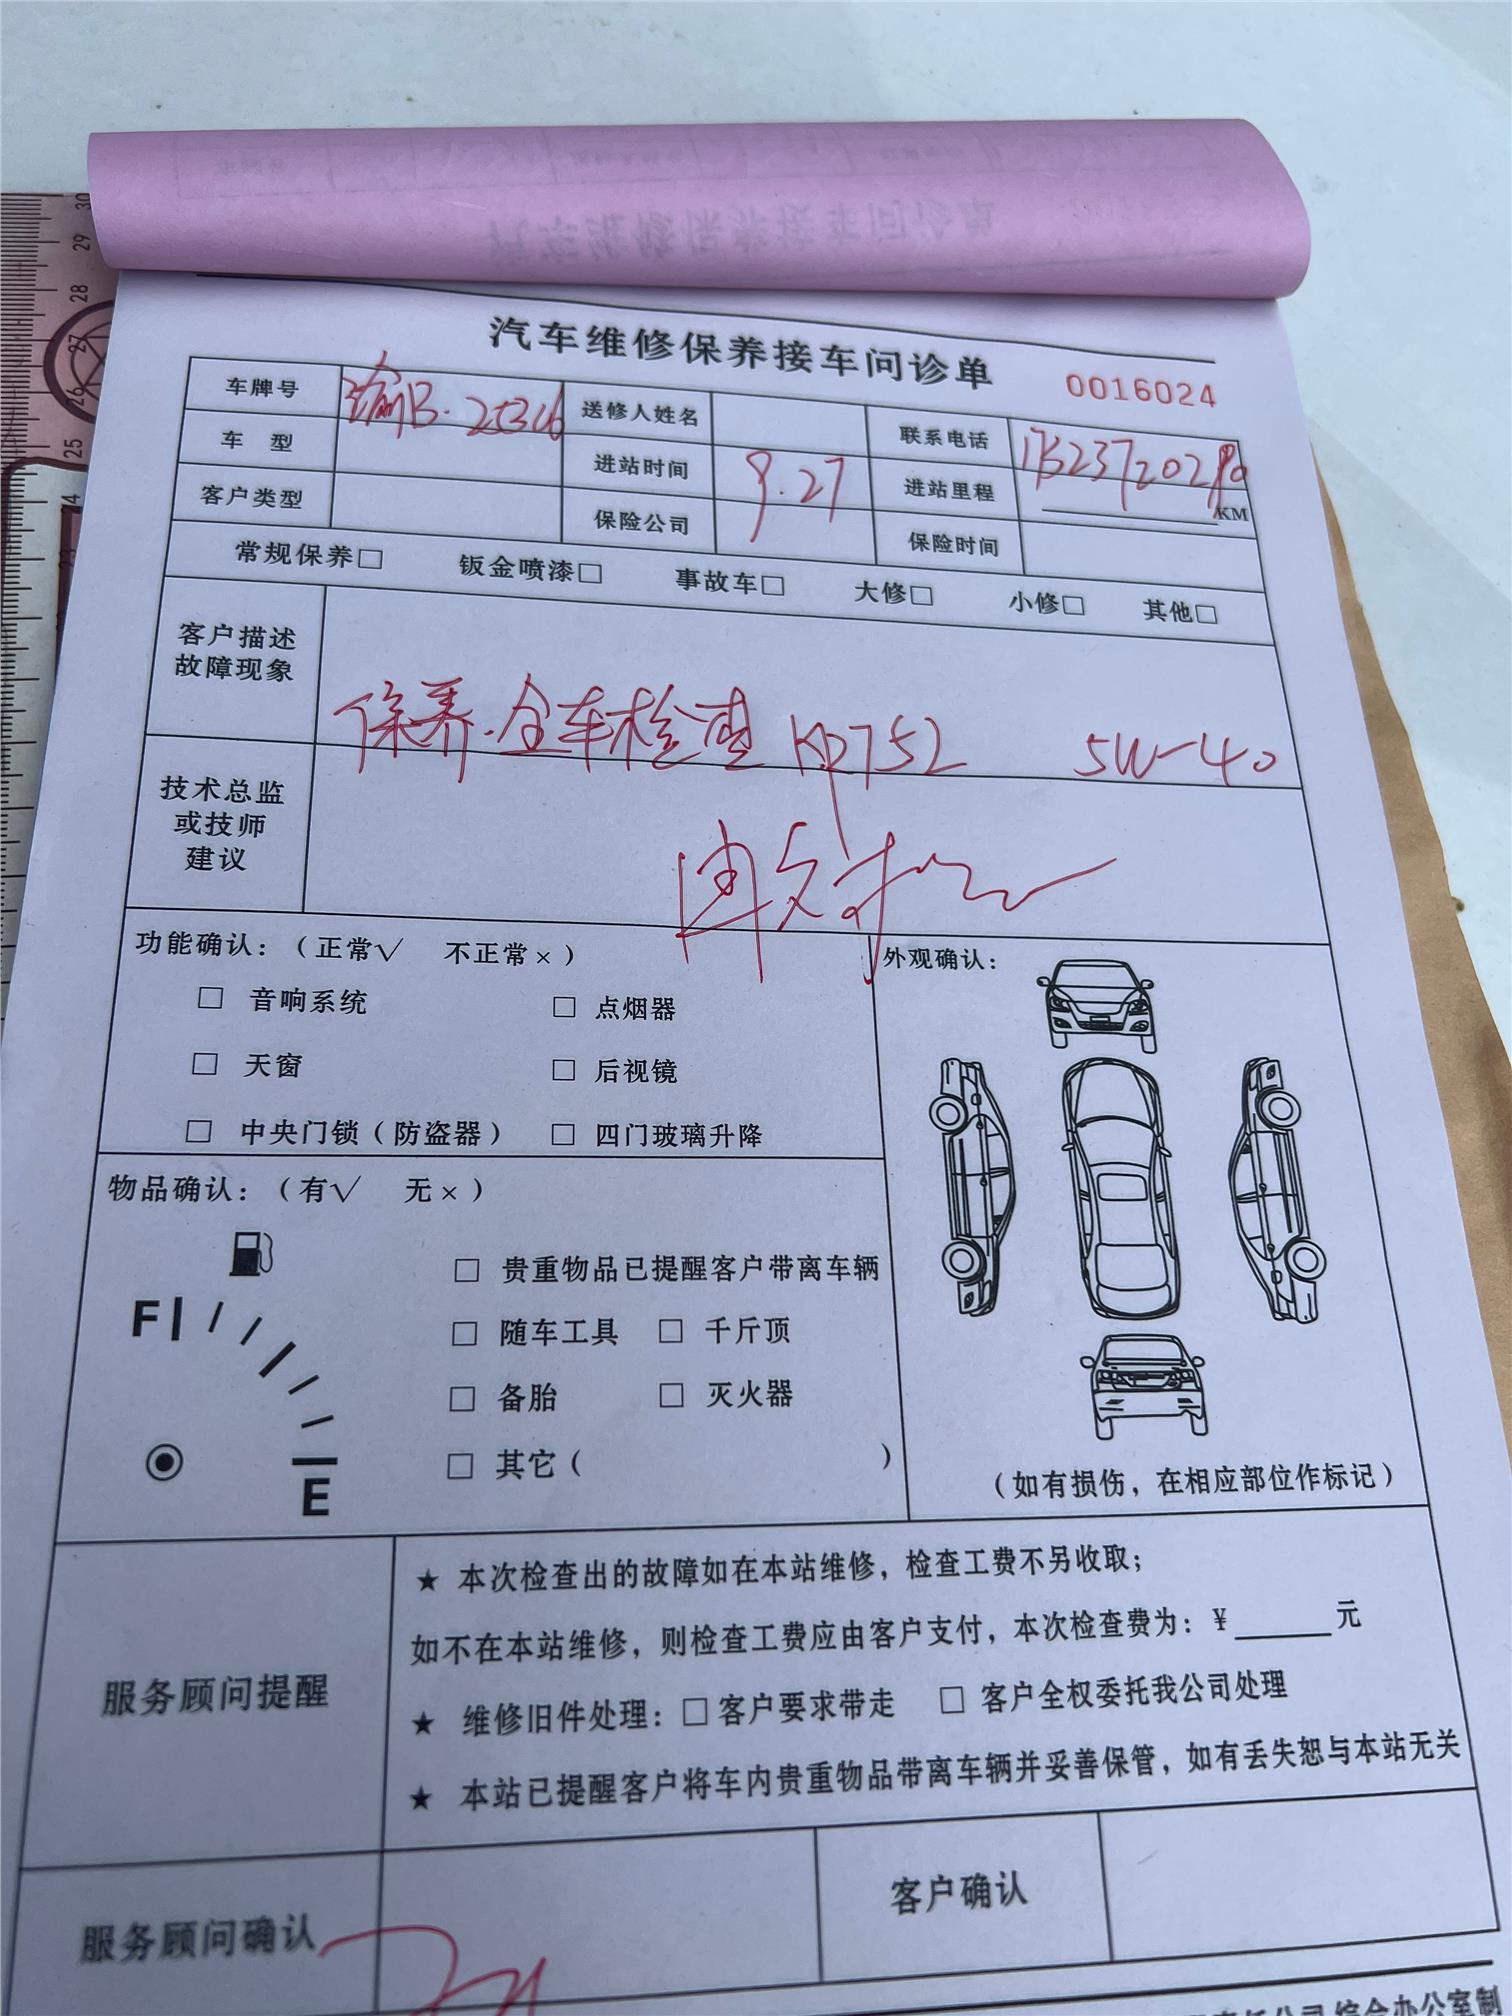 汽车维修保养接车问诊单
0016024
车牌号 渝B·253 送修人姓名 联系电话
车 型 进站时间 9.27 进站里程 KM
客户类型 保险公司 保险时间
常规保养□ 钣金喷漆□ 事故车□ 大修□ 小修□ 其他□
客户描述
故障现象
保养·全车检查 5W-40
技术总监
或技师
建议
功能确认：（正常√ 不正常×）
□ 音响系统 □ 点烟器
□ 天窗 □ 后视镜
□ 中央门锁（防盗器） □ 四门玻璃升降
外观确认：
（如有损伤，在相应部位作标记）
物品确认：（有√ 无×）
F
E
□ 贵重物品已提醒客户带离车辆
□ 随车工具 □ 千斤顶
□ 备胎 □ 灭火器
□ 其它（ ）
服务顾问提醒
★ 本次检查出的故障如在本站维修，检查工费不另收取；
如不在本站维修，则检查工费应由客户支付，本次检查费为：¥______元
★ 维修旧件处理：□客户要求带走 □ 客户全权委托我公司处理
★ 本站已提醒客户将车内贵重物品带离车辆并妥善保管，如有丢失恕与本站无关
服务顾问确认 客户确认
责任公司 综合办公室制
30
29
28
27
26
25
24